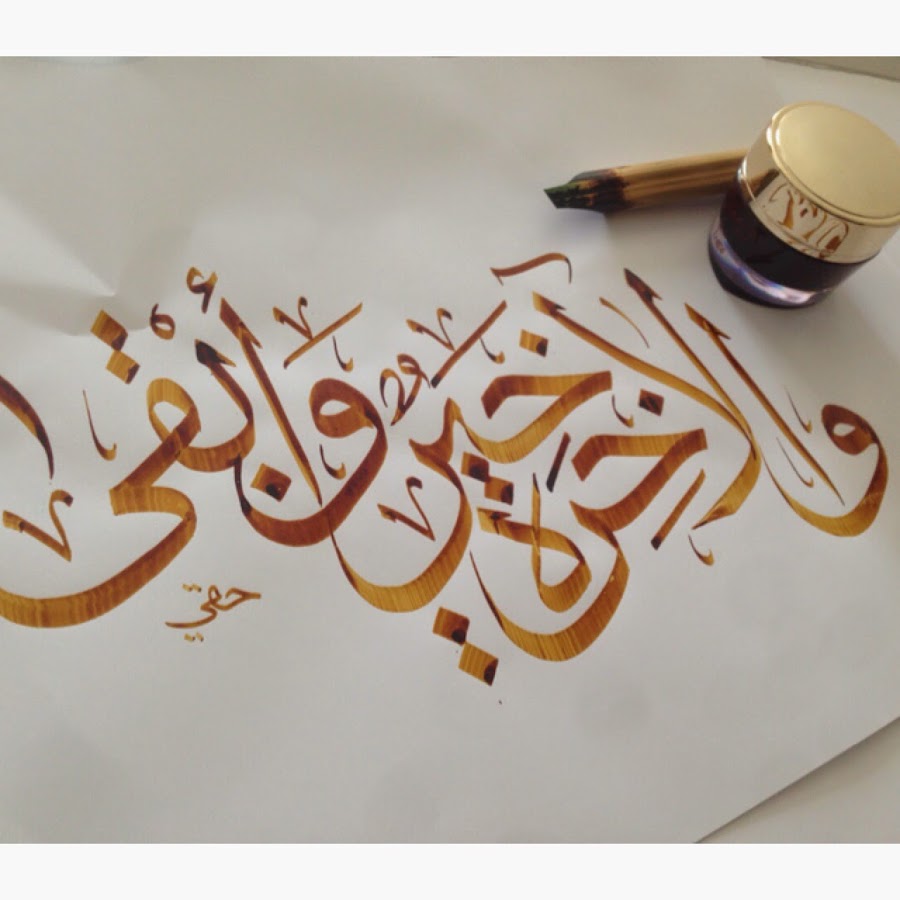 وَالْآخِرَةُ خَيْرٌ وَأَبْقَىٰ
حقي